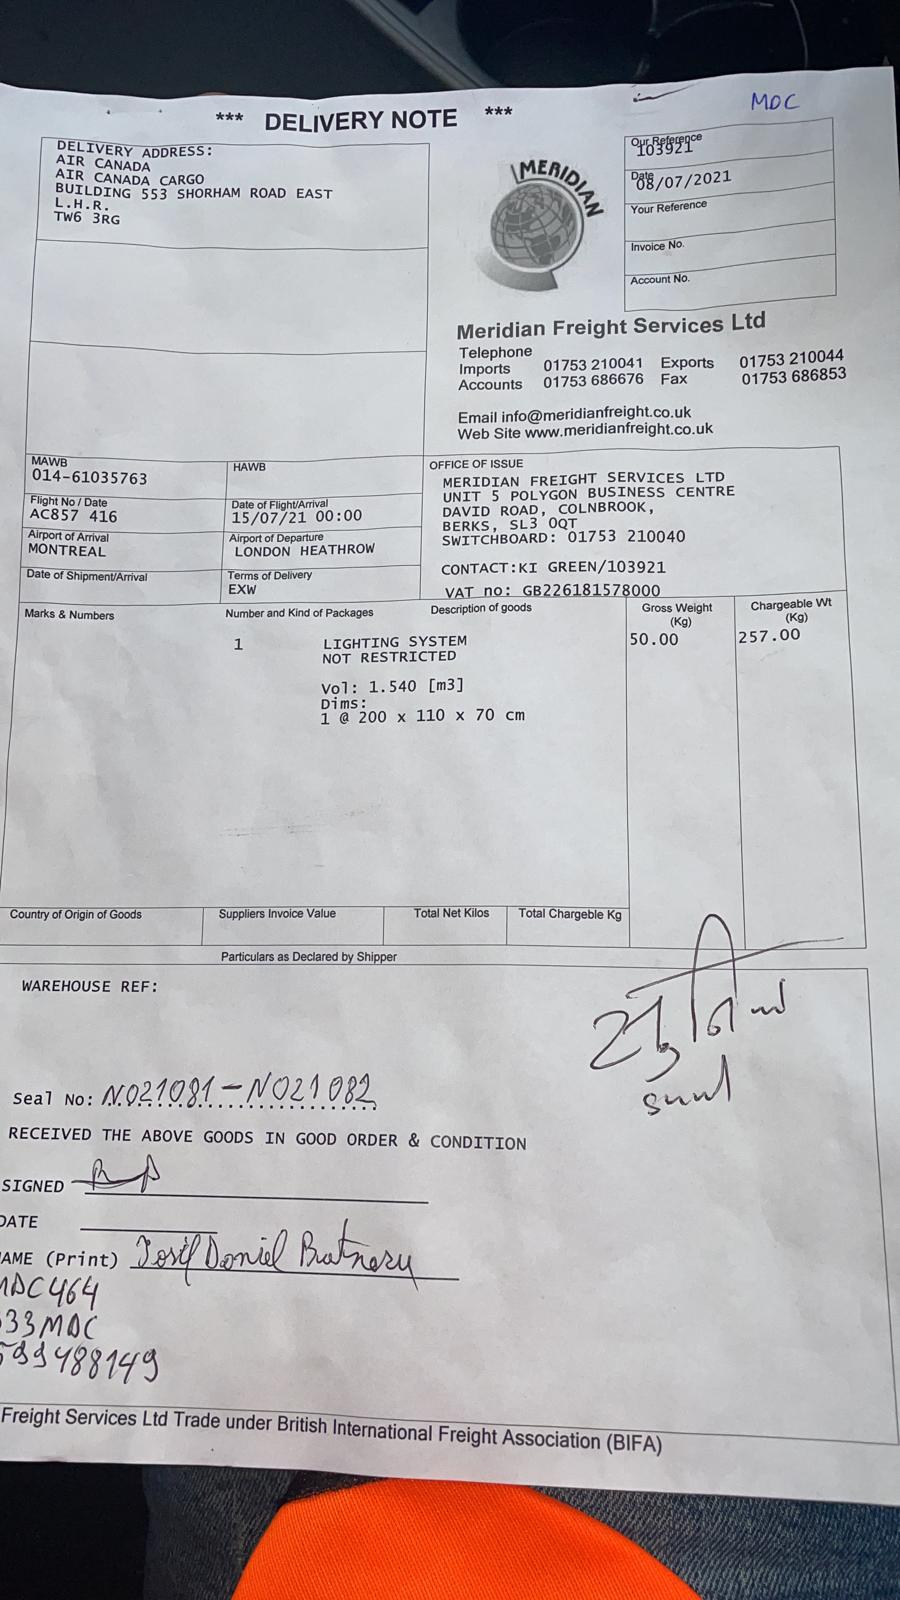 MDC
*** DELIVERY NOTE ***
DELIVERY ADDRESS:
AIR CANADA
AIR CANADA CARGO
BUILDING 553 SHORHAM ROAD EAST
L.H.R.
TW6 3RG
MERIDIAN
Our Reference
103921
Date
08/07/2021
Your Reference
Invoice No.
Account No.
Meridian Freight Services Ltd
Telephone
Imports 01753 210041 Exports 01753 210044
Accounts 01753 686676 Fax 01753 686853
Email info@meridianfreight.co.uk
Web Site www.meridianfreight.co.uk
MAWB
014-61035763
HAWB
Flight No / Date
AC857 416
Date of Flight/Arrival
15/07/21 00:00
Airport of Arrival
MONTREAL
Airport of Departure
LONDON HEATHROW
Date of Shipment/Arrival
Terms of Delivery
EXW
OFFICE OF ISSUE
MERIDIAN FREIGHT SERVICES LTD
UNIT 5 POLYGON BUSINESS CENTRE
DAVID ROAD, COLNBROOK,
BERKS, SL3 0QT
SWITCHBOARD: 01753 210040
CONTACT:KI GREEN/103921
VAT no: GB226181578000
Marks & Numbers
Number and Kind of Packages
Description of goods
Gross Weight
(Kg)
Chargeable Wt
(Kg)
1 LIGHTING SYSTEM 50.00 257.00
NOT RESTRICTED
Vol: 1.540 [m3]
Dims:
1 @ 200 x 110 x 70 cm
Country of Origin of Goods
Suppliers Invoice Value
Total Net Kilos
Total Chargeble Kg
Particulars as Declared by Shipper
WAREHOUSE REF:
Seal No: N021081-N021082
RECEIVED THE ABOVE GOODS IN GOOD ORDER & CONDITION
SIGNED
DATE
NAME (Print) Iosif Daniel
MDC464
33MDC
599488149
Freight Services Ltd Trade under British International Freight Association (BIFA)